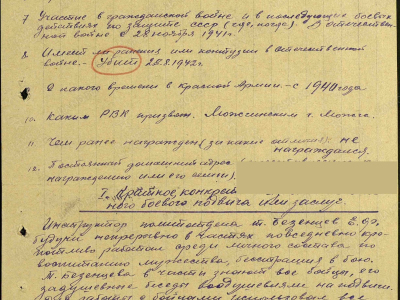 7. Участие в гражданской войне и в последующих боевых
действиях по защите СССР (где, когда). В отечествен-
ной войне с 28 ноября 1941 г.
8. Имеет ли ранения или контузии в отечественной
войне. - Убит 20.8.1942 г.
9. С какого времени в Красной Армии. - с 1940 года
10. Каким РВК призван. Можайским г. Можга.
11. Чем ранее награжден (за какие отличия) не
награждался.
12. Постоянный домашний адрес
награждению или его семьи).
I. Краткое конкрет
ного боевого подвига или заслуг.
Инструктор политотдела т. Безенцев Е.
будучи непрерывно в частях повседневно кро-
потливо работал среди личного состава по
воспитанию мужества, бесстрашия в бою.
т. Безенцева в части знают все бойцы, его
задушевные беседы воодушевляли на подвиги.